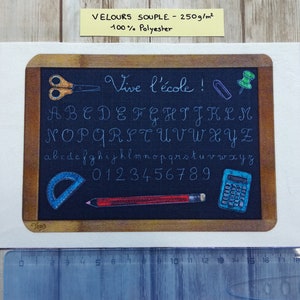 VELOURS SOUPLE - 250g/m²
100% Polyester
Vive l'école !
A B C D E F G H I J K L M
N O P Q R S T U V W X Y Z
a b c d e f g h i j k l m n o p q r s t u v w x y z
0 1 2 3 4 5 6 7 8 9